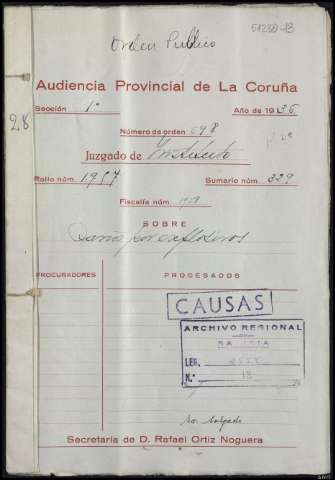 Orden Publico
51239-13
Audiencia Provincial de La Coruña
Sección 1ª Año de 1936
28
Número de orden 698
Juzgado de
Rollo núm. 1957 Sumario núm. 329
Fiscalía núm.
SOBRE
Daños por explosivos
PROCURADORES PROCESADOS
CAUSAS
ARCHIVO REGIONAL
LEG.
N.º 13
Secretaría de D. Rafael Ortiz Noguera